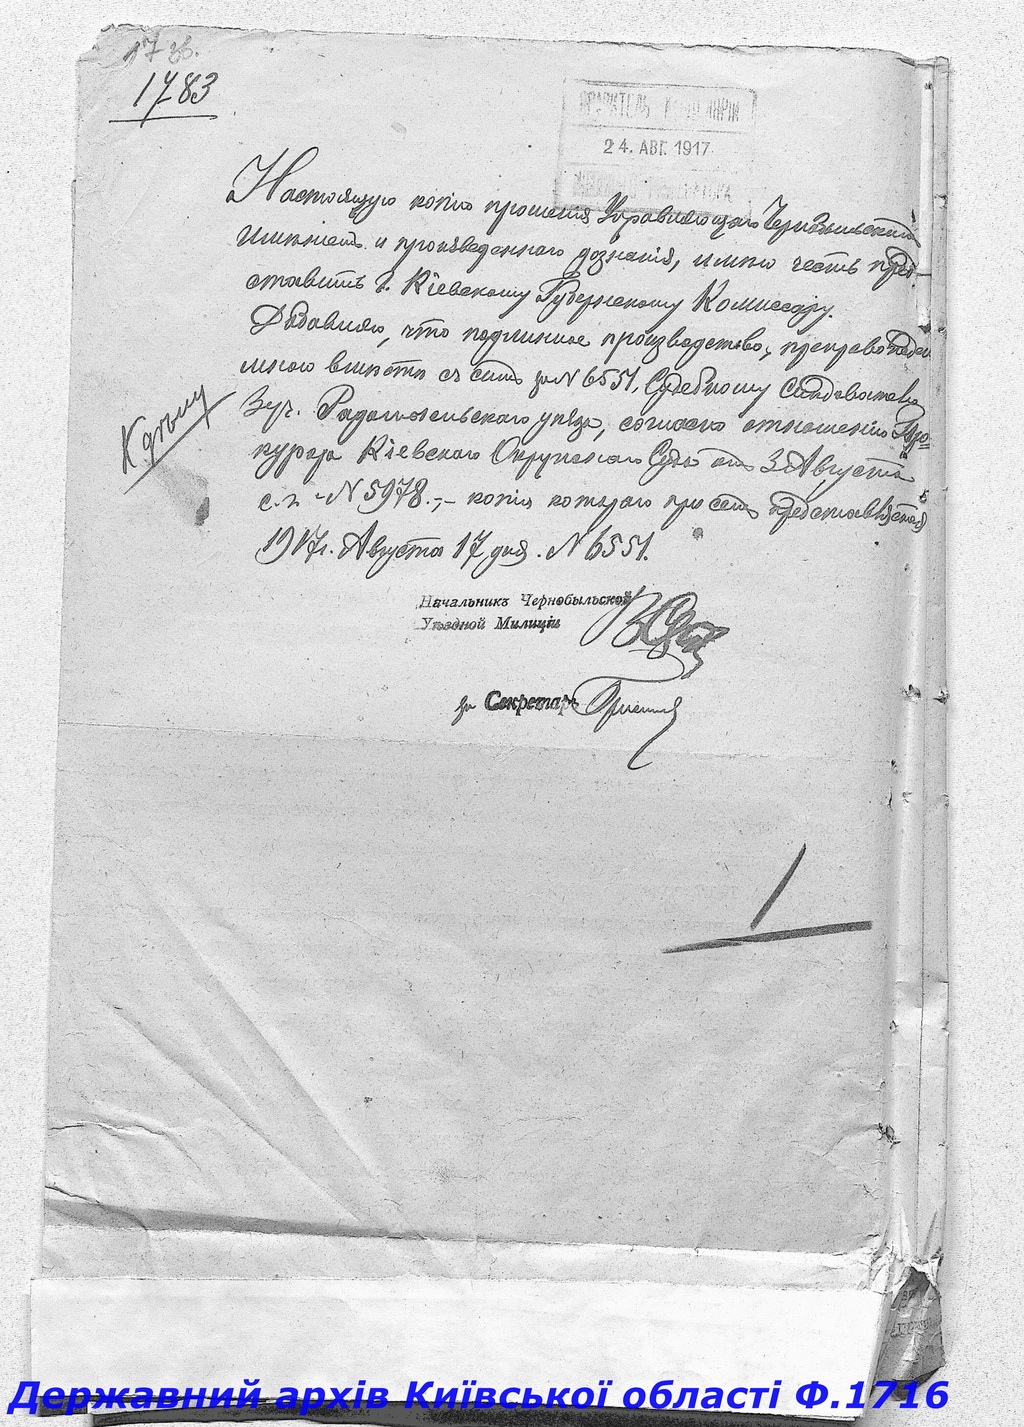 1783
24. АВГ. 1917
Настоящую копію прошенія Управляющаго Чернобыльскимъ
имѣніемъ и произведеннаго дознанія, имѣю честь пред-
ставить Г. Кіевскому Губернскому Комиссару.
Добавляю, что подлинное производство, препровождено
мною вмѣстѣ съ симъ за N 6551, Судебному Слѣдователю
3 уч. Радомысльскаго уѣзда, согласно отношенію Про-
курора Кіевскаго Окружнаго Суда отъ 3 Августа
с.г. N 5978.,- копія котораго при семъ представляется
К дѣлу
1917 г. Августа 17 дня. N 6551.
Начальникъ Чернобыльской
Уѣздной Милиціи
за Секретаря
1
Державний архів Київської області Ф.1716